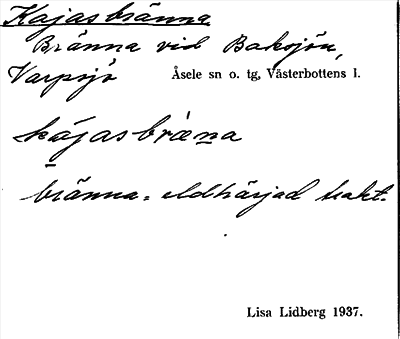 Kajasbränna
Bränna vid Baksjön,
Varpsjö Åsele sn o. tg, Västerbottens l.
kájasbrǽna
bränna = eldhärjad trakt.
Lisa Lidberg 1937.